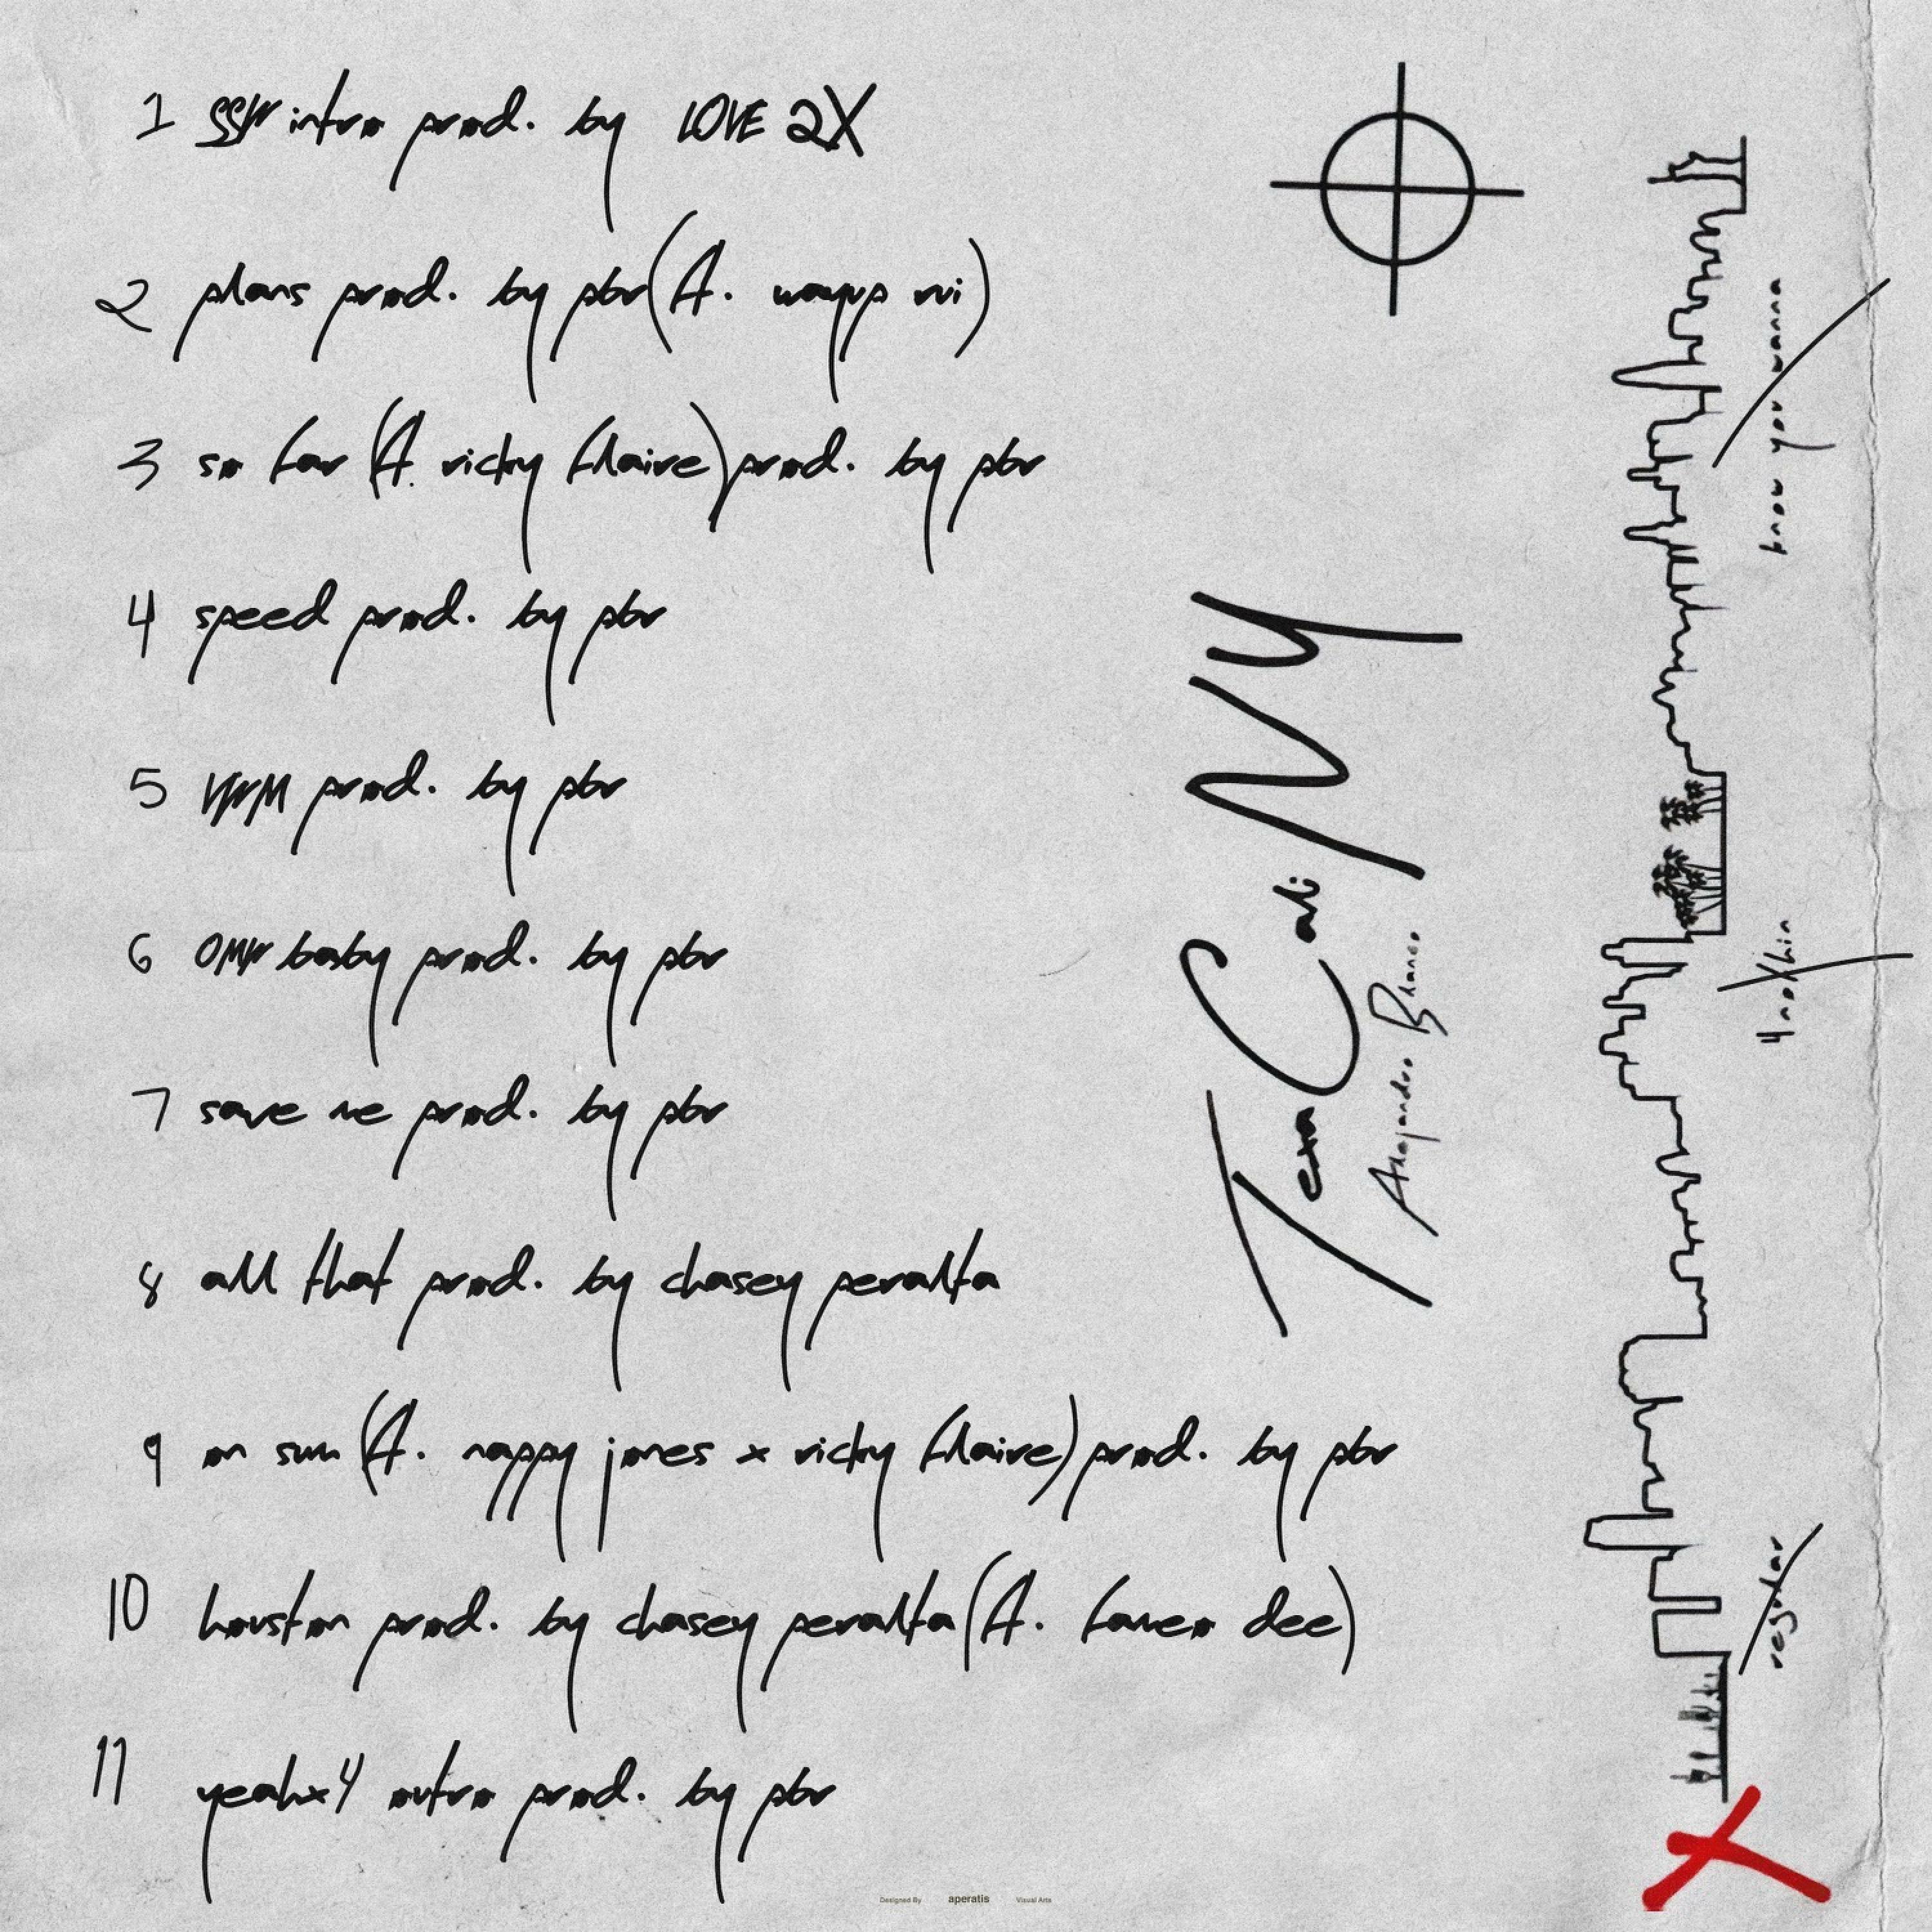 1 SSW intro prod. by LOVE 2X
2 plans prod. by pbr (ft. wayup rvi)
3 so far (ft. ricky flaire) prod. by pbr
4 speed prod. by pbr
5 prod. by pbr
6 OMW baby prod. by pbr
7 save me prod. by pbr
8 all that prod. by chasey peralta
9 on sum (ft. nappy jones x ricky flaire) prod. by pbr
10 houston prod. by chasey peralta (ft. dee)
11 yeahx4 outro prod. by pbr
TexaCaliNY
Blanco
know you wanna
regular
Designed By aperatis Visual Arts